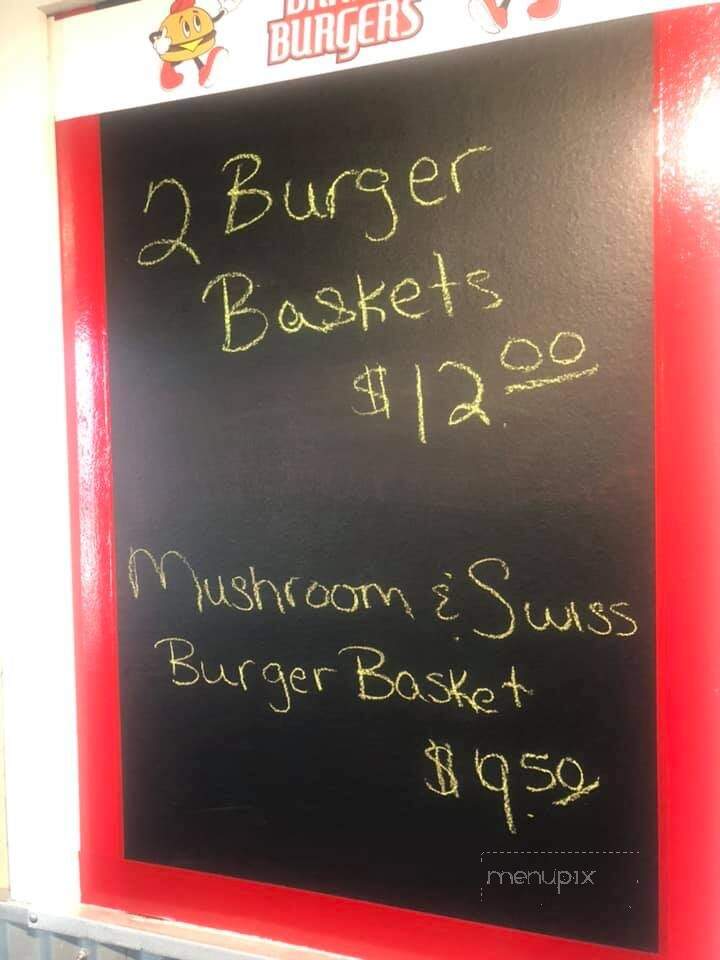 BURGERS
2 Burger
Baskets
$12.00
Mushroom & Swiss
Burger Basket
$9.50
menupix